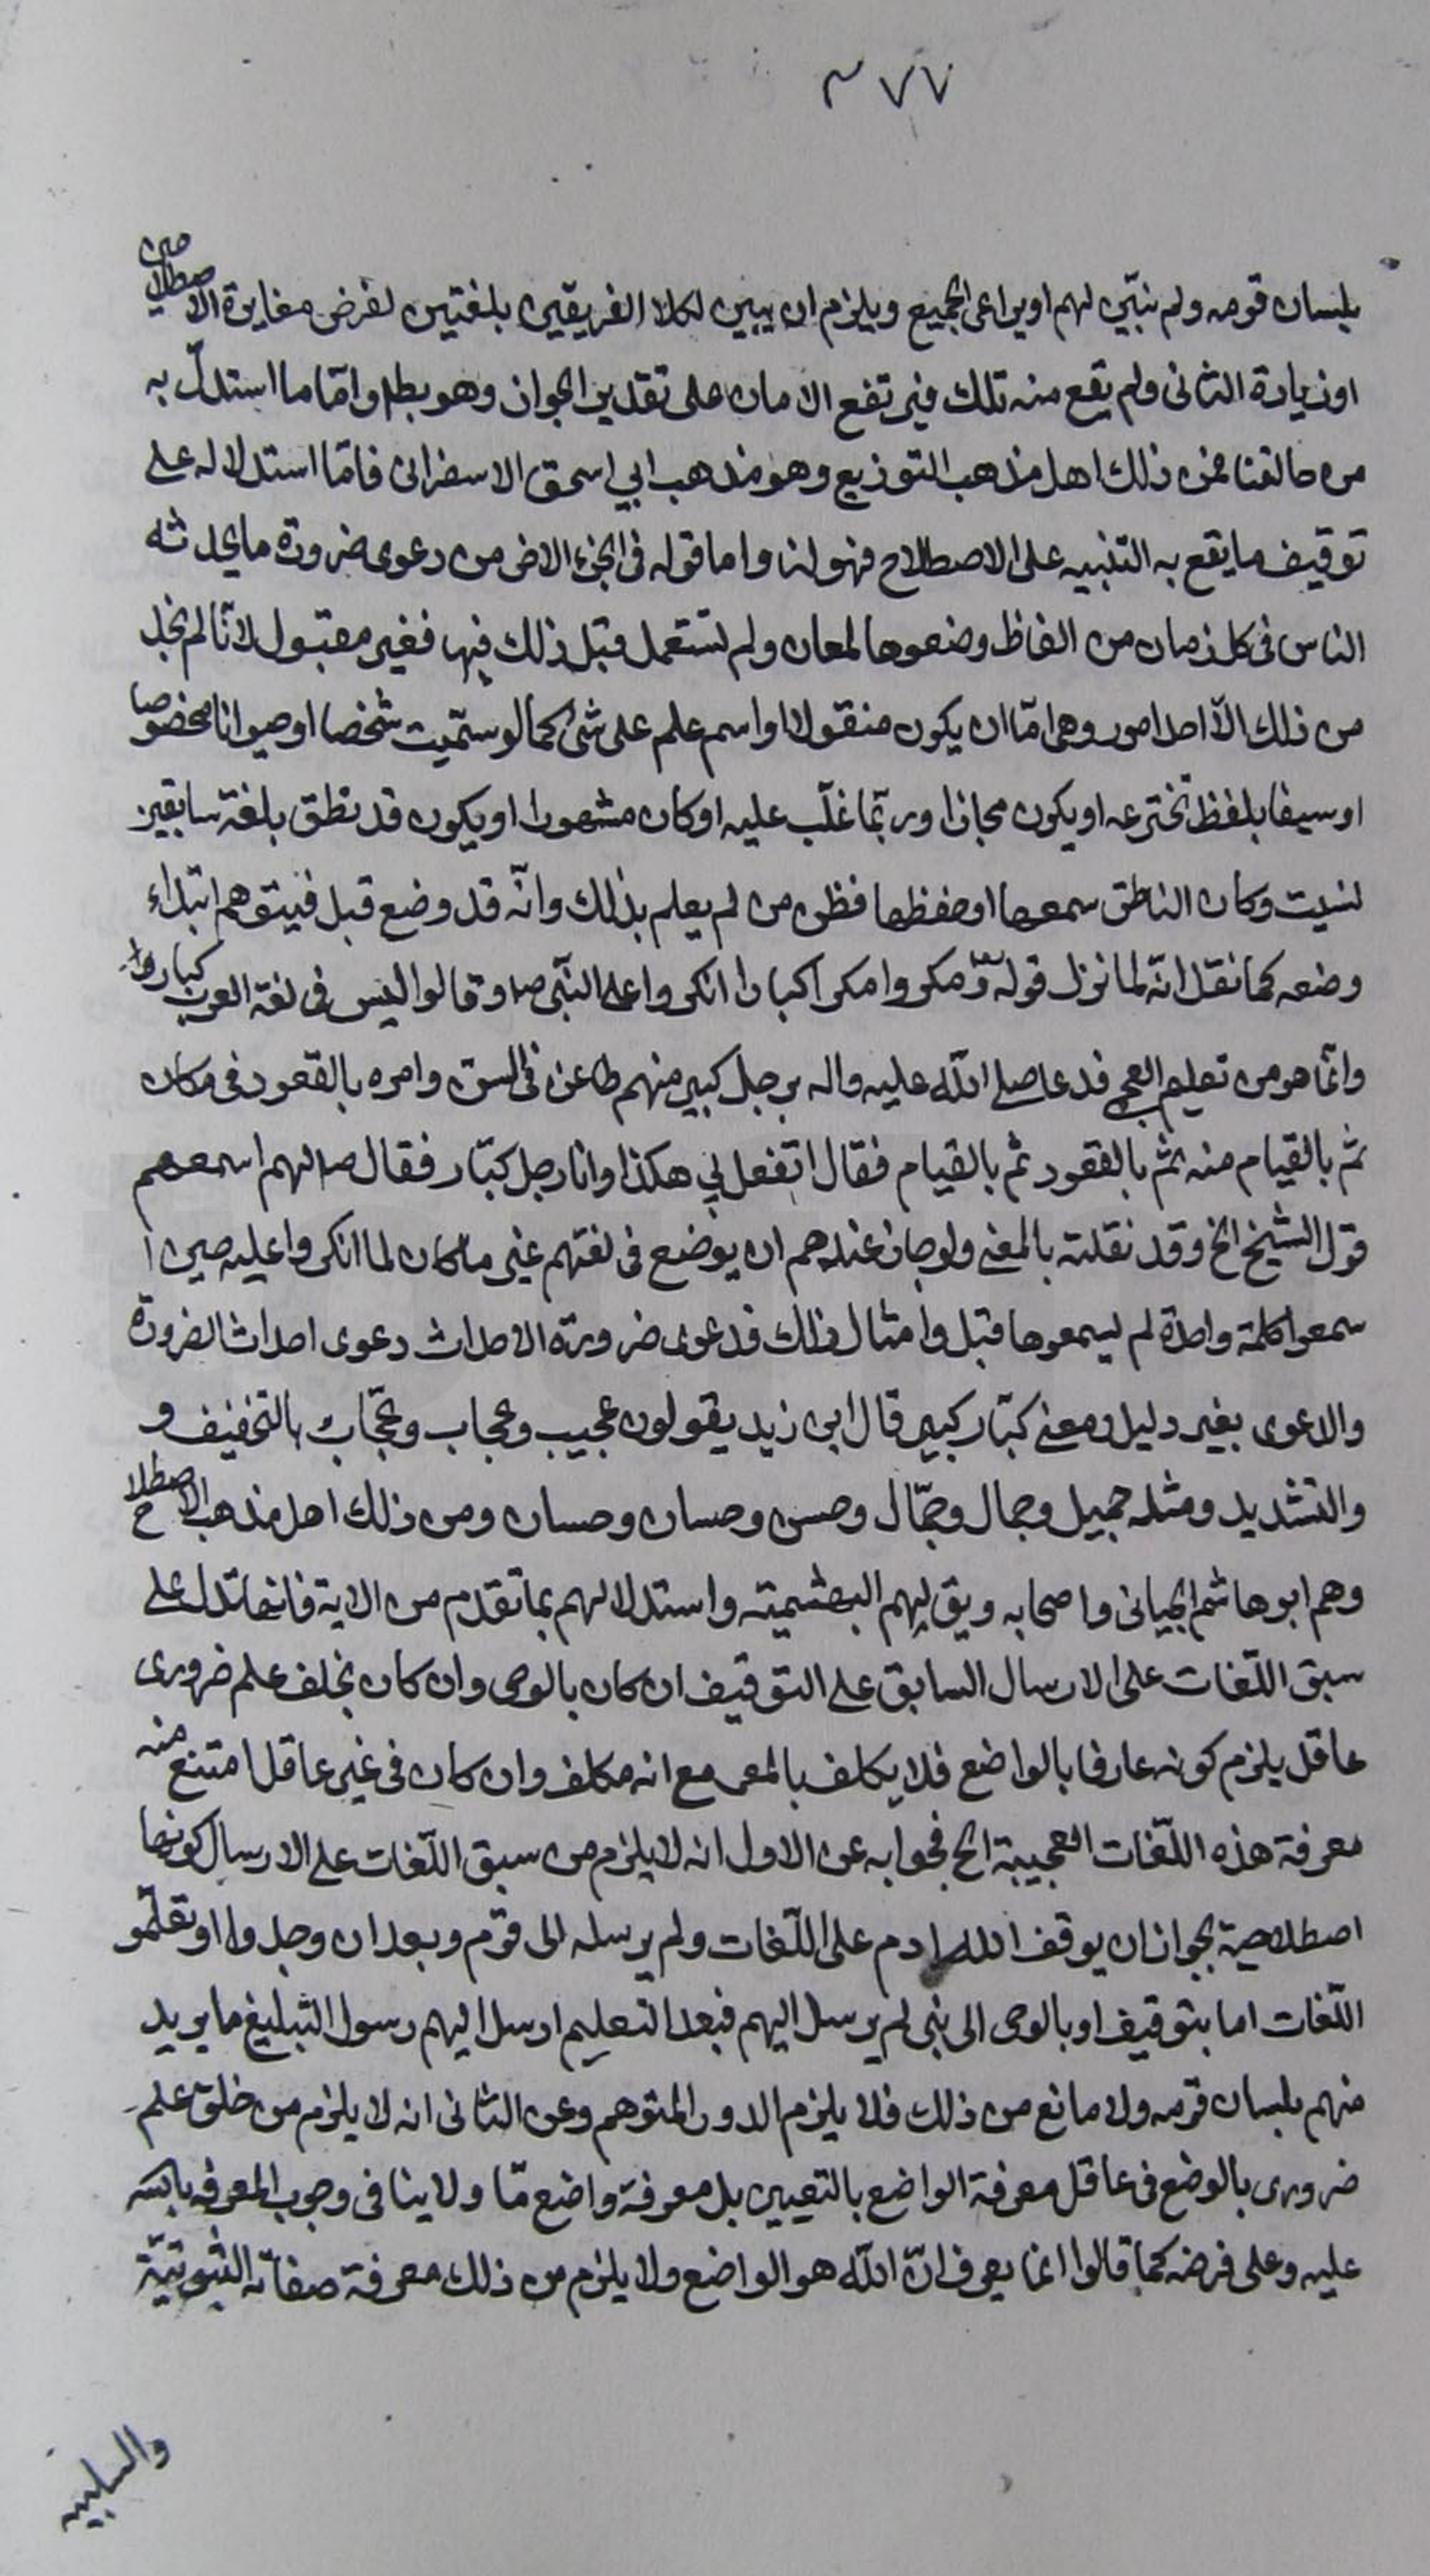 ٣٧٧
بلسان قومه ولم نبيّن لهم او يراعى الجميع ويلزم ان يبين لكلا الفريقين بلغتين لفرض مغايرة الاصطلاحين
او زيادة الثانى ولم يقع منه تلك فيرتفع الامان على تقدير الجواز وهو بطل وامّا ما استدلّ به
من خالفنا فمن ذلك اهل مذهب التوزيع وهو مذهب ابي اسحق الاسفرائى فامّا استدلاله على
توقيف ما يقع به التنبيه على الاصطلاح فهو لنا واما قوله فى الجزء الاخر من دعوى ضرورة ما يحدثه
الناس فى كل زمان من الفاظ وضعوها لمعان ولم تستعمل قبل ذلك فيها فغير مقبول لانّا لم نجد
من ذلك الّا احد امور وهى امّا ان يكون منقولا او اسم علم على شئ كما لو سمّيت شخصا او حيوانا مخصوصا
او سيفا بلفظ تخترعه او يكون مجازا وربّما غلّب عليه او كان مشهورا او يكون قد نطق بلغة سابقين
نسيت وكان الناطق سمعها او حفظها فظن من لم يعلم بذلك وانّه قد وضع قبل فيتوهم ابتداء
وضعه كما نقل انّه لما نزل قوله تع ومكروا مكرا كبارا انكروا على النبّى ص وقالوا ليس فى لغة العرب كبارا
وانّما هو من تعليم العجمى فدعا صلى اللّه عليه واله برجل كبير منهم طاعن فى السن وامره بالقعود فى مكان
ثم بالقيام منه ثم بالقعود ثم بالقيام فقال اتفعل بي هكذا وانا رجل كبّار فقال ص لهم اسمعهم
قول الشيخ الخ وقد نقلته بالمعنى ولو جاز عندهم ان يوضع فى لغتهم غير ما كان لما انكروا عليه حين
سمعوا كلمة واحدة لم يسمعوها قبل وامثال ذلك فدعوى ضرورة الاحداث دعوى احداث الضرورة
والدعوى بغير دليل ومعنى كبّار كبير قال ابن زيد يقولون عجيب وعجاب وعجّاب بالتخفيف و
والتشديد ومثله جميل وجمال وجمّال وحسن وحسان وحسان ومن ذلك اهل مذهب الاصطلاح
وهم ابو هاشم الجبائى واصحابه ويق لهم البهشمية واستدلالهم بما تقدم من الاية فانها تدل على
سبق اللّغات على الارسال السابق على التوقيف ان كان بالوحى وان كان بخلف علم ضرورى
عاقل يلزم كونه عارفا بالواضع فلا يكلف بالمعر مع انه مكلف وان كان فى غير عاقل امتنع منه
معرفة هذه اللّغات العجيبة الخ فجوابه عن الاول انه لا يلزم من سبق اللّغات على الارسال كونها
اصطلاحية لجواز ان يوقف اللّه ادم على اللّغات ولم يرسله الى قوم وبعد ان وجدوا او تعلّمو
اللّغات اما بتوقيف او بالوحى الى نبى لم يرسل اليهم فبعد التعليم ارسل اليهم رسول التبليغ ما يريد
منهم بلسان قومه ولا مانع من ذلك فلا يلزم الدور المتوهم وعن الثانى انه لا يلزم من خلق علم
ضرورى بالوضع فى عاقل معرفة الواضع بالتعيين بل معرفة واضع مّا ولا ينافى وجوب المعرفه بالله
عليه وعلى فرضه كما قالوا انما يعرف انّ اللّه هو الواضع ولا يلزم من ذلك معرفة صفاته الثبوتيّة
والسلبيه